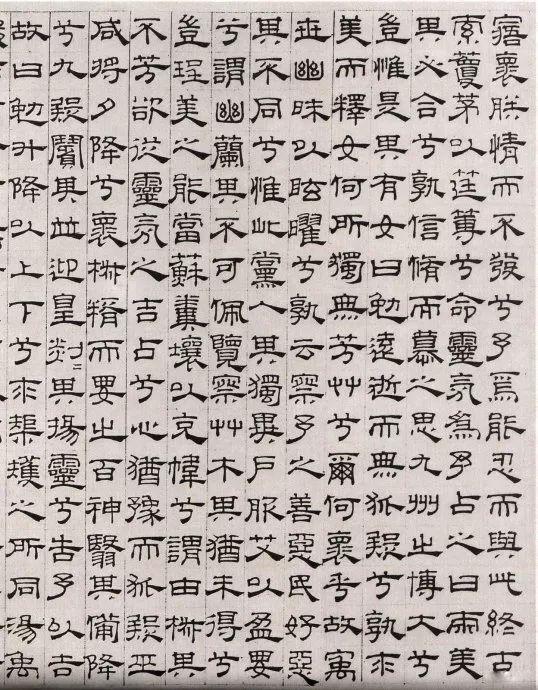 寤褱朕情而不發兮予焉能忍而與此終古
索藑茅以筳篿兮命靈氛為予占之曰兩美
其必合兮孰信脩而慕之思九州之博大兮
豈惟是其有女曰勉遠逝而無狐疑兮孰求
美而釋女何所獨無芳艸兮爾何褱乎故寓
世幽昧以眩曜兮孰云察予之善惡民好惡
其不同兮惟此黨人其獨異戶服艾以盈要
兮謂幽蘭其不可佩覽察艸木其猶未得兮
豈珵美之能當蘇糞壤以充幃兮謂申椒其
不芳欲從靈氛之吉占兮心猶豫而狐疑巫
咸將夕降兮褱椒糈而要之百神翳其備降
兮九疑繽其並迎皇剡〻其揚靈兮告予以吉
故曰勉升降以上下兮求榘矱之所同湯禹